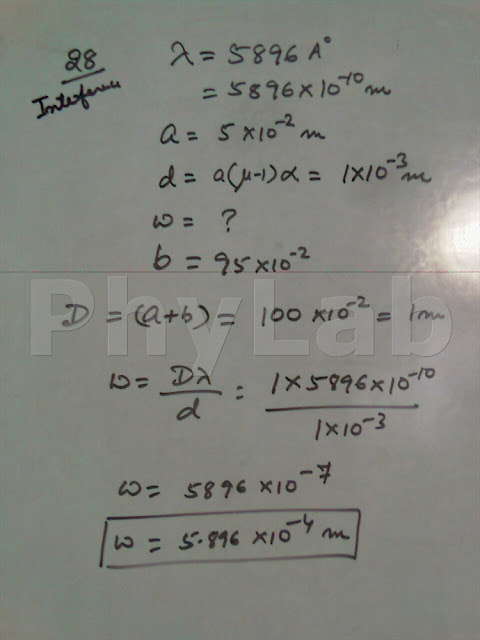 28
Interference
λ = 5896 A°
= 5896×10⁻¹⁰ m
a = 5×10⁻² m
d = a(μ-1)α = 1×10⁻³ m
ω = ?
b = 95×10⁻²
PhyLab
D = (a+b) = 100×10⁻² = 1m
ω = Dλ/d = 1×5896×10⁻¹⁰/1×10⁻³
ω = 5896×10⁻⁷
ω = 5.896×10⁻⁴ m